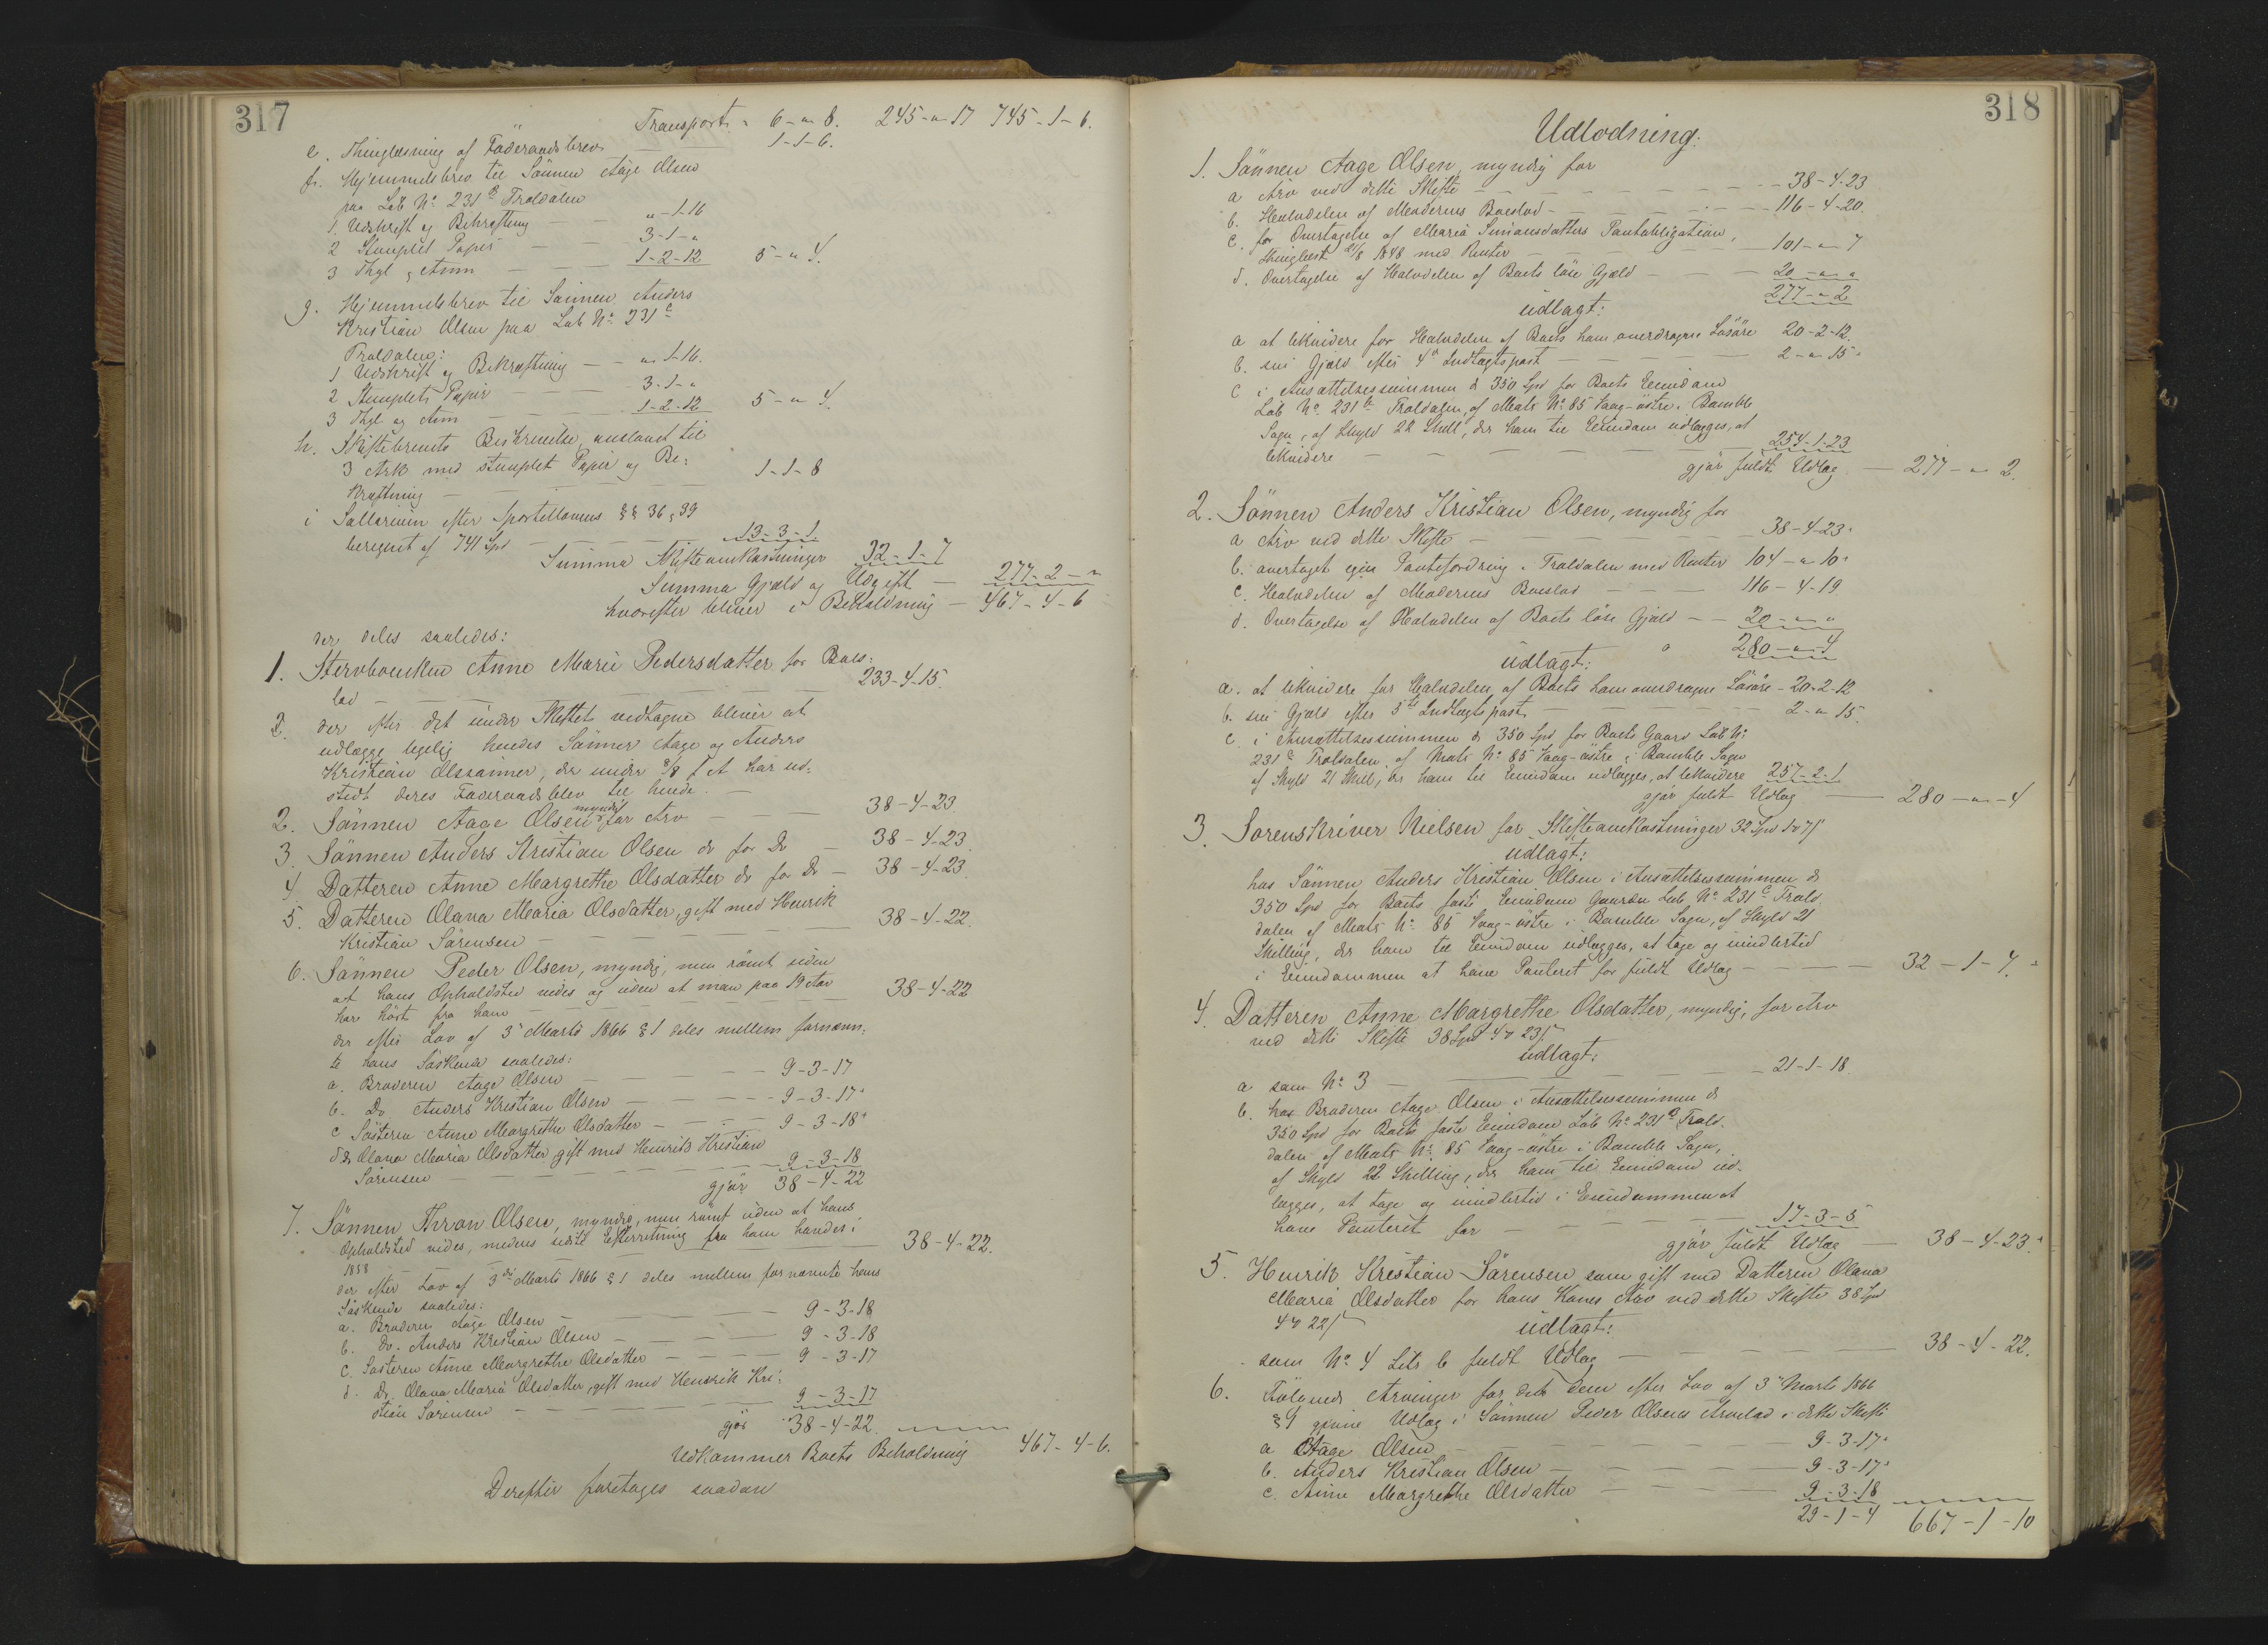 317
Transport " 6 - " 8. 245 - " 17 745 - 1 - 6.
e. Thinglæsning af Föderaadsbrev — 1-1-6.
f. Hjemmelsbrev til Sönnen Aage Olsen
paa Løb No. 231 b Traldalen
1. Udskrift og Bekræftning — " - 1-16
2 Stemplet Papir — 3-1-"
3 Thgl og Ann — 1-2-12 5 - " 4.
g. Hjemmelsbrev til Sönnen Anders
Kristian Olsen paa Løb No. 231 c
Traldalen:
1 Udskrift og Bekræftning — " 1-16.
2 Stemplet Papir — 3-1-"
3 Thgl og Ann — 1-2-12 5 - " 4.
h. Skiftebrevets Beskrivelse, anslaaet til
3 Ark med stemplet Papir og Be-
kræftning — 1-1-8
i Sallarium efter Sportellovens §§ 36, 39
beregnet af 741 Spd — 13-3-1.
Summa Skifteomkostninger 32-1-7
Summa Gjæld og Udgift — 277-2-"
hvorefter bliver i Beholdning — 467-4-6
der deles saaledes:
1. Stervboenken Anne Marie Pedersdatter for Boes-
lod — 233-4-15.
der efter det under Skiftet vedtagne bliver at
udlægge ligelig hendes Sönner Aage og Anders
Kristian Olssønner, der under 8/8 f A har ud-
stedt deres Föderaadsbrev til hende. —
2. Sönnen Aage Olsen myndig for Arv — 38-4-23.
3. Sönnen Anders Kristian Olsen do for Do — 38-4-23.
4. Datteren Anne Margrethe Olsdatter do for Do — 38-4-23.
5. Datteren Olava Maria Olsdatter, gift med Henrik
Kristian Sörensen — 38-4-22.
6. Sönnen Peder Olsen, myndig, men römt uden
at hans Opholdsted vides og uden at man paa 19 Aar
har hört fra ham — 38-4-22
der efter Lov af 3 Marts 1866 § 1 deles mellem fornævn-
te hans Söskende saaledes:
a. Broderen Aage Olsen — 9-3-17
b. Do Anders Kristian Olsen — 9-3-17
c Sösteren Anne Margrethe Olsdatter — 9-3-18
d Do Olava Maria Olsdatter, gift med Henrik Kristian
Sörensen — 9-3-18
gjör 38-4-22
7. Sönnen Thron Olsen, myndig, men römt uden at hans
Opholdsted vides, medens sidste Efterretning fra ham havdes i
1858 — 38-4-22.
der efter Lov af 3die Marts 1866 § 1 deles mellem fornævnte hans
Söskende saaledes:
a. Broderen Aage Olsen — 9-3-18
b. Do. Anders Kristian Olsen — 9-3-18
c. Sösteren Anne Margrethe Olsdatter — 9-3-17
d. Do. Olava Maria Olsdatter, gift med Henrik Kri-
stian Sörensen — 9-3-17
gjör 38-4-22.
Udkommer Boets Beholdning 467-4-6.
Derefter foretages saadan
318
Udlodning:
1. Sönnen Aage Olsen, myndig for
a Arv ved dette Skifte — 38-4-23
b. Halvdelen af Moderens Boeslod — 116-4-20.
c. for Overtagelse af Maria Simonsdatters Pantobligation,
thinglæst 21/8 1848 med Renter — 101 - " 7
d. Overtagelse af Halvdelen af Boets löse Gjæld — 20 - " "
277 - " 2
udlagt:
a at likvidere for Halvdelen af Boets ham overdragne Lösöre 20-2-12.
b. sin Gjæld efter 4de Indtægtspost — 2 - " 15
c i Ansættelsessummen d 350 Spd for Boets Eiendom
Løb No. 231 b Traldalen, af Matr No. 85 Vaag-östre i Bamble
Sogn, af Skyld 22 Skill, der ham til Eiendom udlægges, at
likvidere — 254-1-23
gjör fuldt Udlæg — 277 - " 2.
2. Sönnen Anders Kristian Olsen, myndig for
a Arv ved dette Skifte — 38-4-23
b. overtaget egen Pantefordring i Traldalen med Renter 104 - " 10
c. Halvdelen af Moderens Boeslod — 116-4-19.
d. Overtagelse af Halvdelen af Boets löse Gjæld — 20 - " "
280 - " - 4
udlagt:
a. at likvidere for Halvdelen af Boets ham overdragne Lösöre - 20-2-12
b. sin Gjæld efter 5te Indtægtspost — 2 - " 15.
c. i Ansættelsessummen d 350 Spd for Boets Gaard Løb No.
231 c Traldalen, af Matr No. 85 Vaag-östre i Bamble Sogn
af Skyld 21 Skill, der ham til Eiendom udlægges, at likvidere 257-2-1
gjör fuldt Udlæg — 280 - " - 4
3. Sorenskriver Nielsen for Skifteomkostninger 32 Spd 1 # 7 ß
udlagt:
hos Sönnen Anders Kristian Olsen i Ansættelsessummen d
350 Spd for Boets faste Eiendom Gaarden Løb No. 231 c Tral-
dalen af Matr No. 85 Vaag-östre i Bamble Sogn, af Skyld 21
Skilling, der ham til Eiendom udlægges, at tage og imidlertid
i Eiendommen at have Panteret for fuldt Udlæg — 32-1-7.
4. Datteren Anne Margrethe Olsdatter, myndig, for Arv
ved dette Skifte 38 Spd 4 # 23 ß
udlagt:
a som No. 3 — 21-1-18.
b. hos Broderen Aage Olsen i Ansættelsessummen d
350 Spd for Boets faste Eiendom Løb No. 231 b Tral-
dalen af Matr No. 85 Vaag-östre i Bamble Sogn,
af Skyld 22 Skilling, der ham til Eiendom ud-
lægges, at tage og imidlertid i Eiendommen at
have Panteret for — 17-3-5
gjör fuldt Udlæg — 38-4-23.
5. Henrik Kristian Sörensen som gift med Datteren Olava
Maria Olsdatter for hans Kones Arv ved dette Skifte 38 Spd
4 # 22 ß
udlagt:
som No. 4 Litr b fuldt Udlæg — 38-4-22.
6. Fölgende Arvinger for det dem efter Lov af 3 Marts 1866
§ 1 givne Udlæg i Sönnen Peder Olsens Arvelod i dette Skifte
a Aage Olsen — 9-3-17
b. Anders Kristian Olsen — 9-3-17
c. Anne Margrethe Olsdatter — 9-3-18
29-1-4 667-1-10